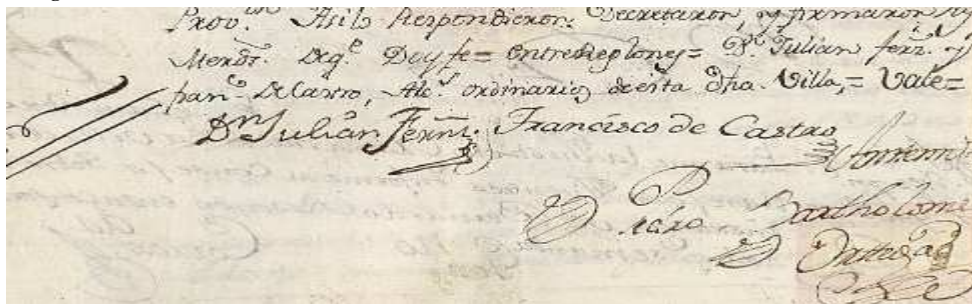 Prov.on Asilo Respondieron: Decretaron, y firmaron sus
Merds. deq.e Doy fe = entreReglones = Dn. Julian fern.z y
fran.co de Castro, Alc.s ordinarios deesta dha. Villa, = Vale =
Dn Julián Fern.z Francisco de Castro
Pedro Bartholome
Ortega